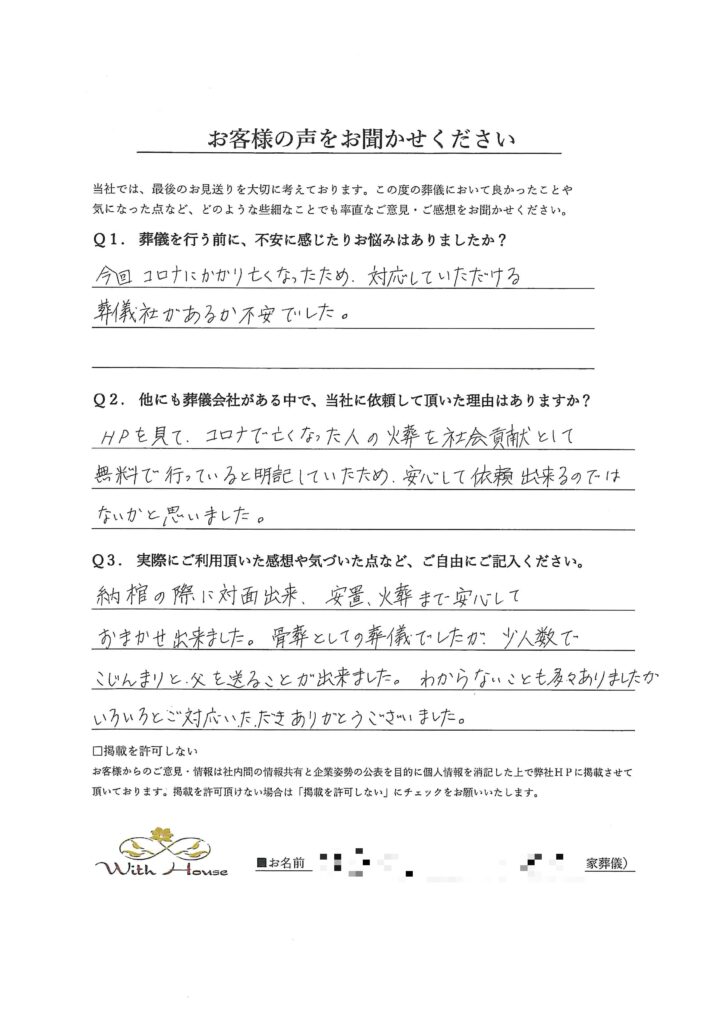 お客様の声をお聞かせください
当社では、最後のお見送りを大切に考えております。この度の葬儀において良かったことや
気になった点など、どのような些細なことでも率直なご意見・ご感想をお聞かせください。
Q1. 葬儀を行う前に、不安に感じたりお悩みはありましたか？
今回コロナにかかり亡くなったため、対応していただける
葬儀社があるか不安でした。
Q2. 他にも葬儀会社がある中で、当社に依頼して頂いた理由はありますか？
HPを見て、コロナで亡くなった人の火葬を社会貢献として
無料で行っていると明記していたため、安心して依頼出来るのでは
ないかと思いました。
Q3. 実際にご利用頂いた感想や気づいた点など、ご自由にご記入ください。
納棺の際に対面出来、安置、火葬まで安心して
おまかせ出来ました。骨葬としての葬儀でしたが、少人数で
こじんまりと、父を送ることが出来ました。わからないことも多々ありましたが
いろいろとご対応いただきありがとうございました。
□掲載を許可しない
お客様からのご意見・情報は社内間の情報共有と企業姿勢の公表を目的に個人情報を消記した上で弊社HPに掲載させて
頂いております。掲載を許可頂けない場合は「掲載を許可しない」にチェックをお願いいたします。
With House
■お名前 家葬儀）